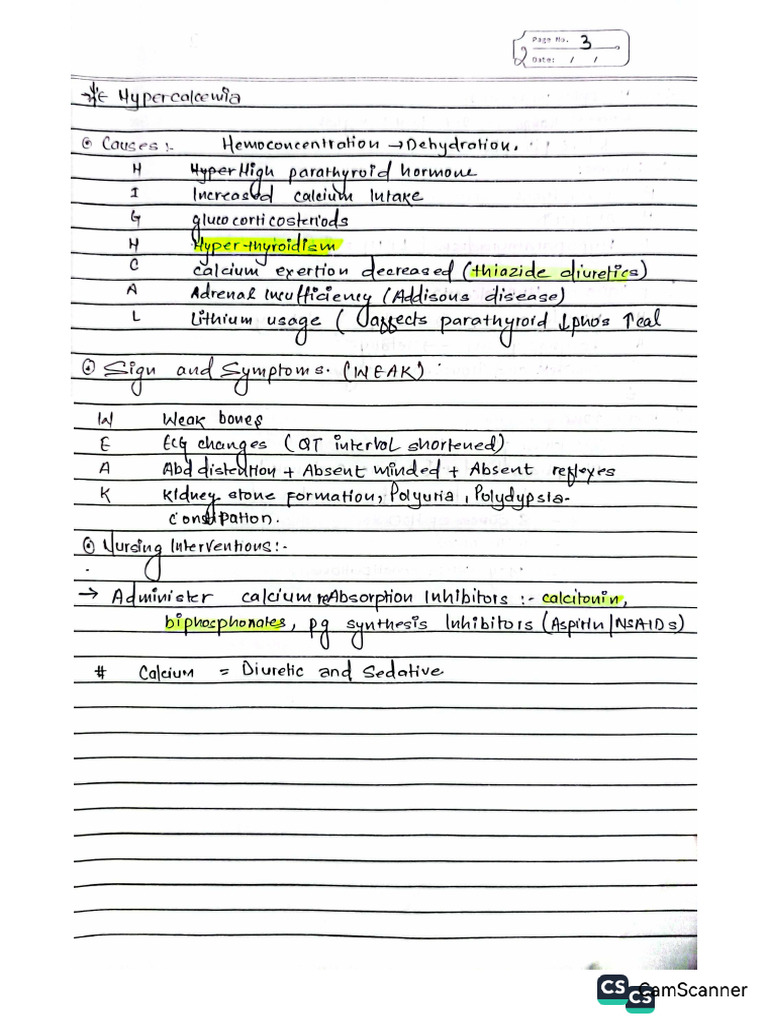 Page No. 3
Date: / /
Hypercalcemia
Causes :- Hemoconcentration → Dehydration.
H Hyper High parathyroid hormone
I Increased calcium Intake
G glucocorticosteriods
H Hyper-thyroidism
C calcium exertion decreased (thiazide diuretics)
A Adrenal Insufficiency (Addisons disease)
L Lithium usage ( affects parathyroid ↓phos ↑cal
Sign and Symptoms. (WEAK)
W Weak bones
E ECG changes (QT interval shortened)
A Abd distention + Absent minded + Absent reflexes
K Kidney stone formation, Polyuria, Polydypsia.
constipation.
Nursing Interventions:-
→ Administer calcium reAbsorption Inhibitors :- calcitonin,
biphosphonates, pg synthesis Inhibitors (Aspirin/NSAIDs)
# Calcium = Diuretic and Sedative
CS CamScanner
CS